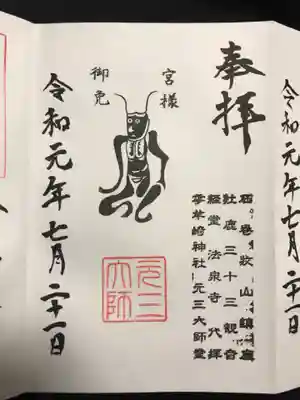 奉拝
石巻牧山鎮座
牡鹿三十三観音
経堂法泉寺代拝
零羊崎神社元三大師堂
宮様
御免
元三
大師
令和元年七月二十一日
令和元年七月二十一日